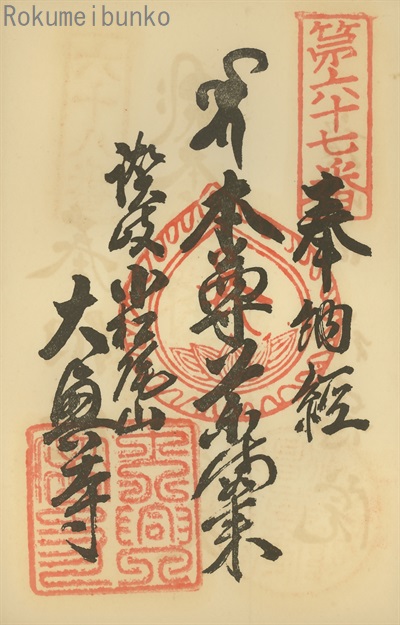 Rokumeibunko
第六十七番
奉納経
本尊薬師如来
讃岐
小松尾山
大興寺